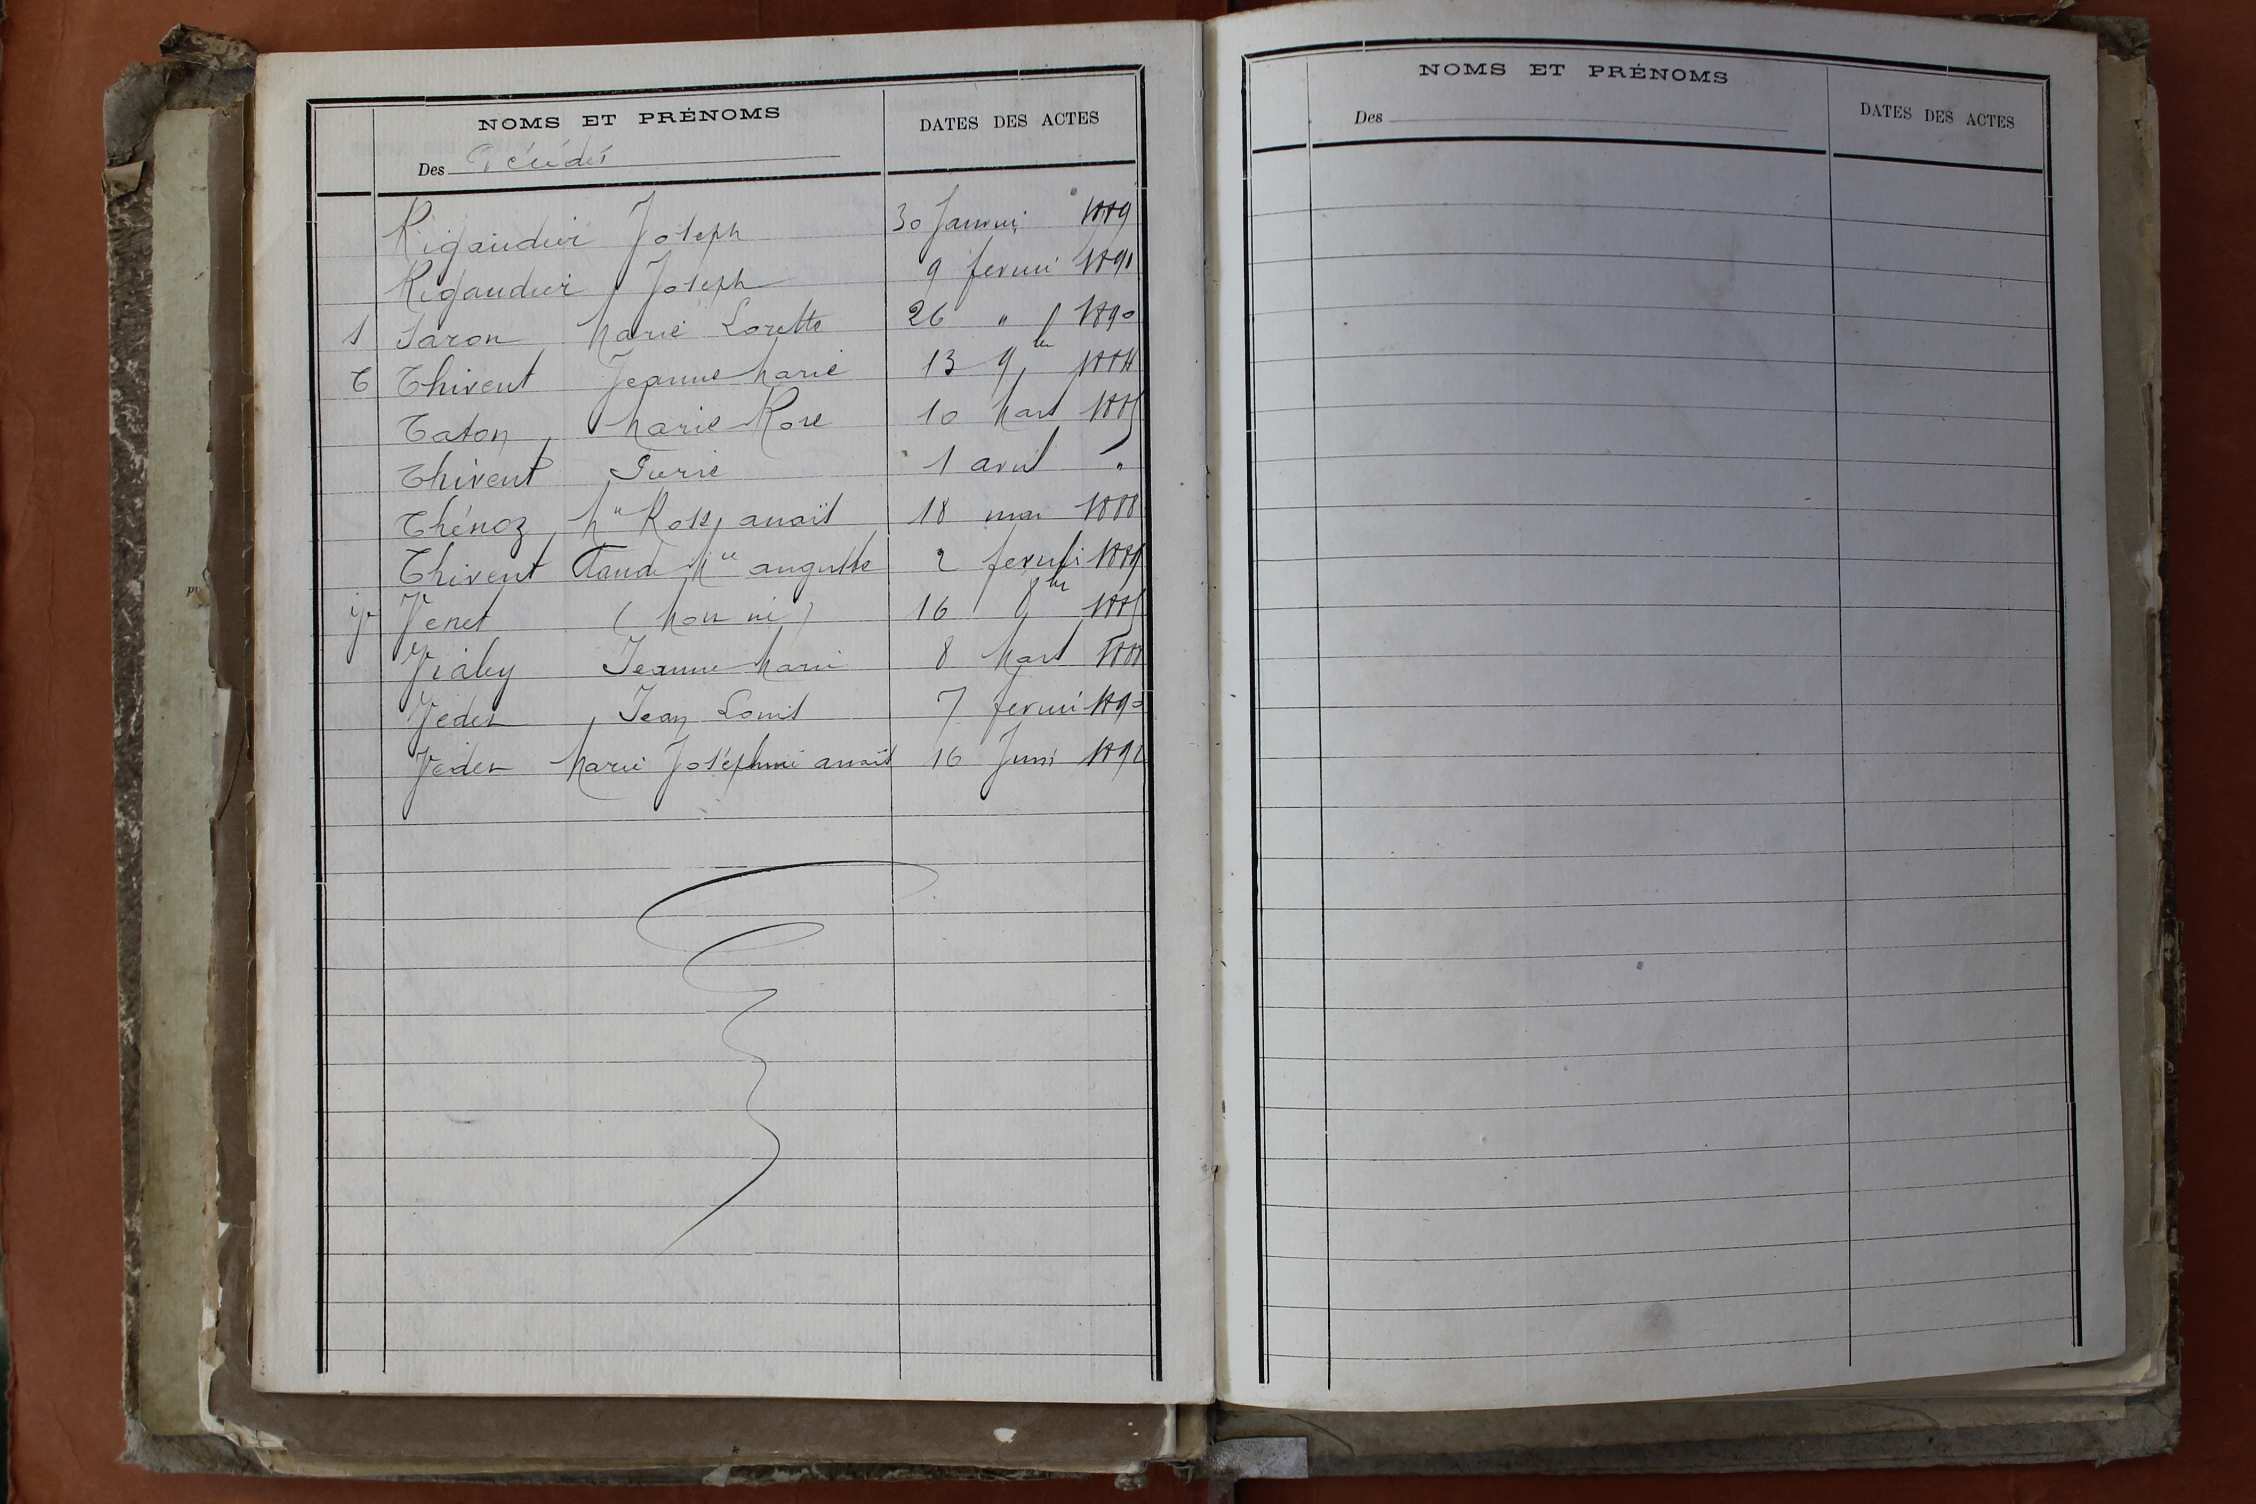 NOMS ET PRÉNOMS
DATES DES ACTES
Des Décédés
Rigaudier Joseph 30 Janvier 1889
Rigaudier Joseph 9 fevrier 1891
S Saron Marie Lorette 26 " 1890
T Thivent Jeanne Marie 13 9bre 1884
Taton Marie Rose 10 Mars 1885
Thivent 1 avril "
Thénoz Mie Rose anaïs 18 mai 1888
Thivent Claude Mie auguste 2 fevrier 1889
V Venet (Mort né) 16 8bre 1885
Vialey Jeanne Marie 8 Mars 1888
Veder Jean Louis 7 fevrier 1890
Veder Marie Joséphine anaïs 16 Juin 1892
NOMS ET PRÉNOMS
DATES DES ACTES
Des